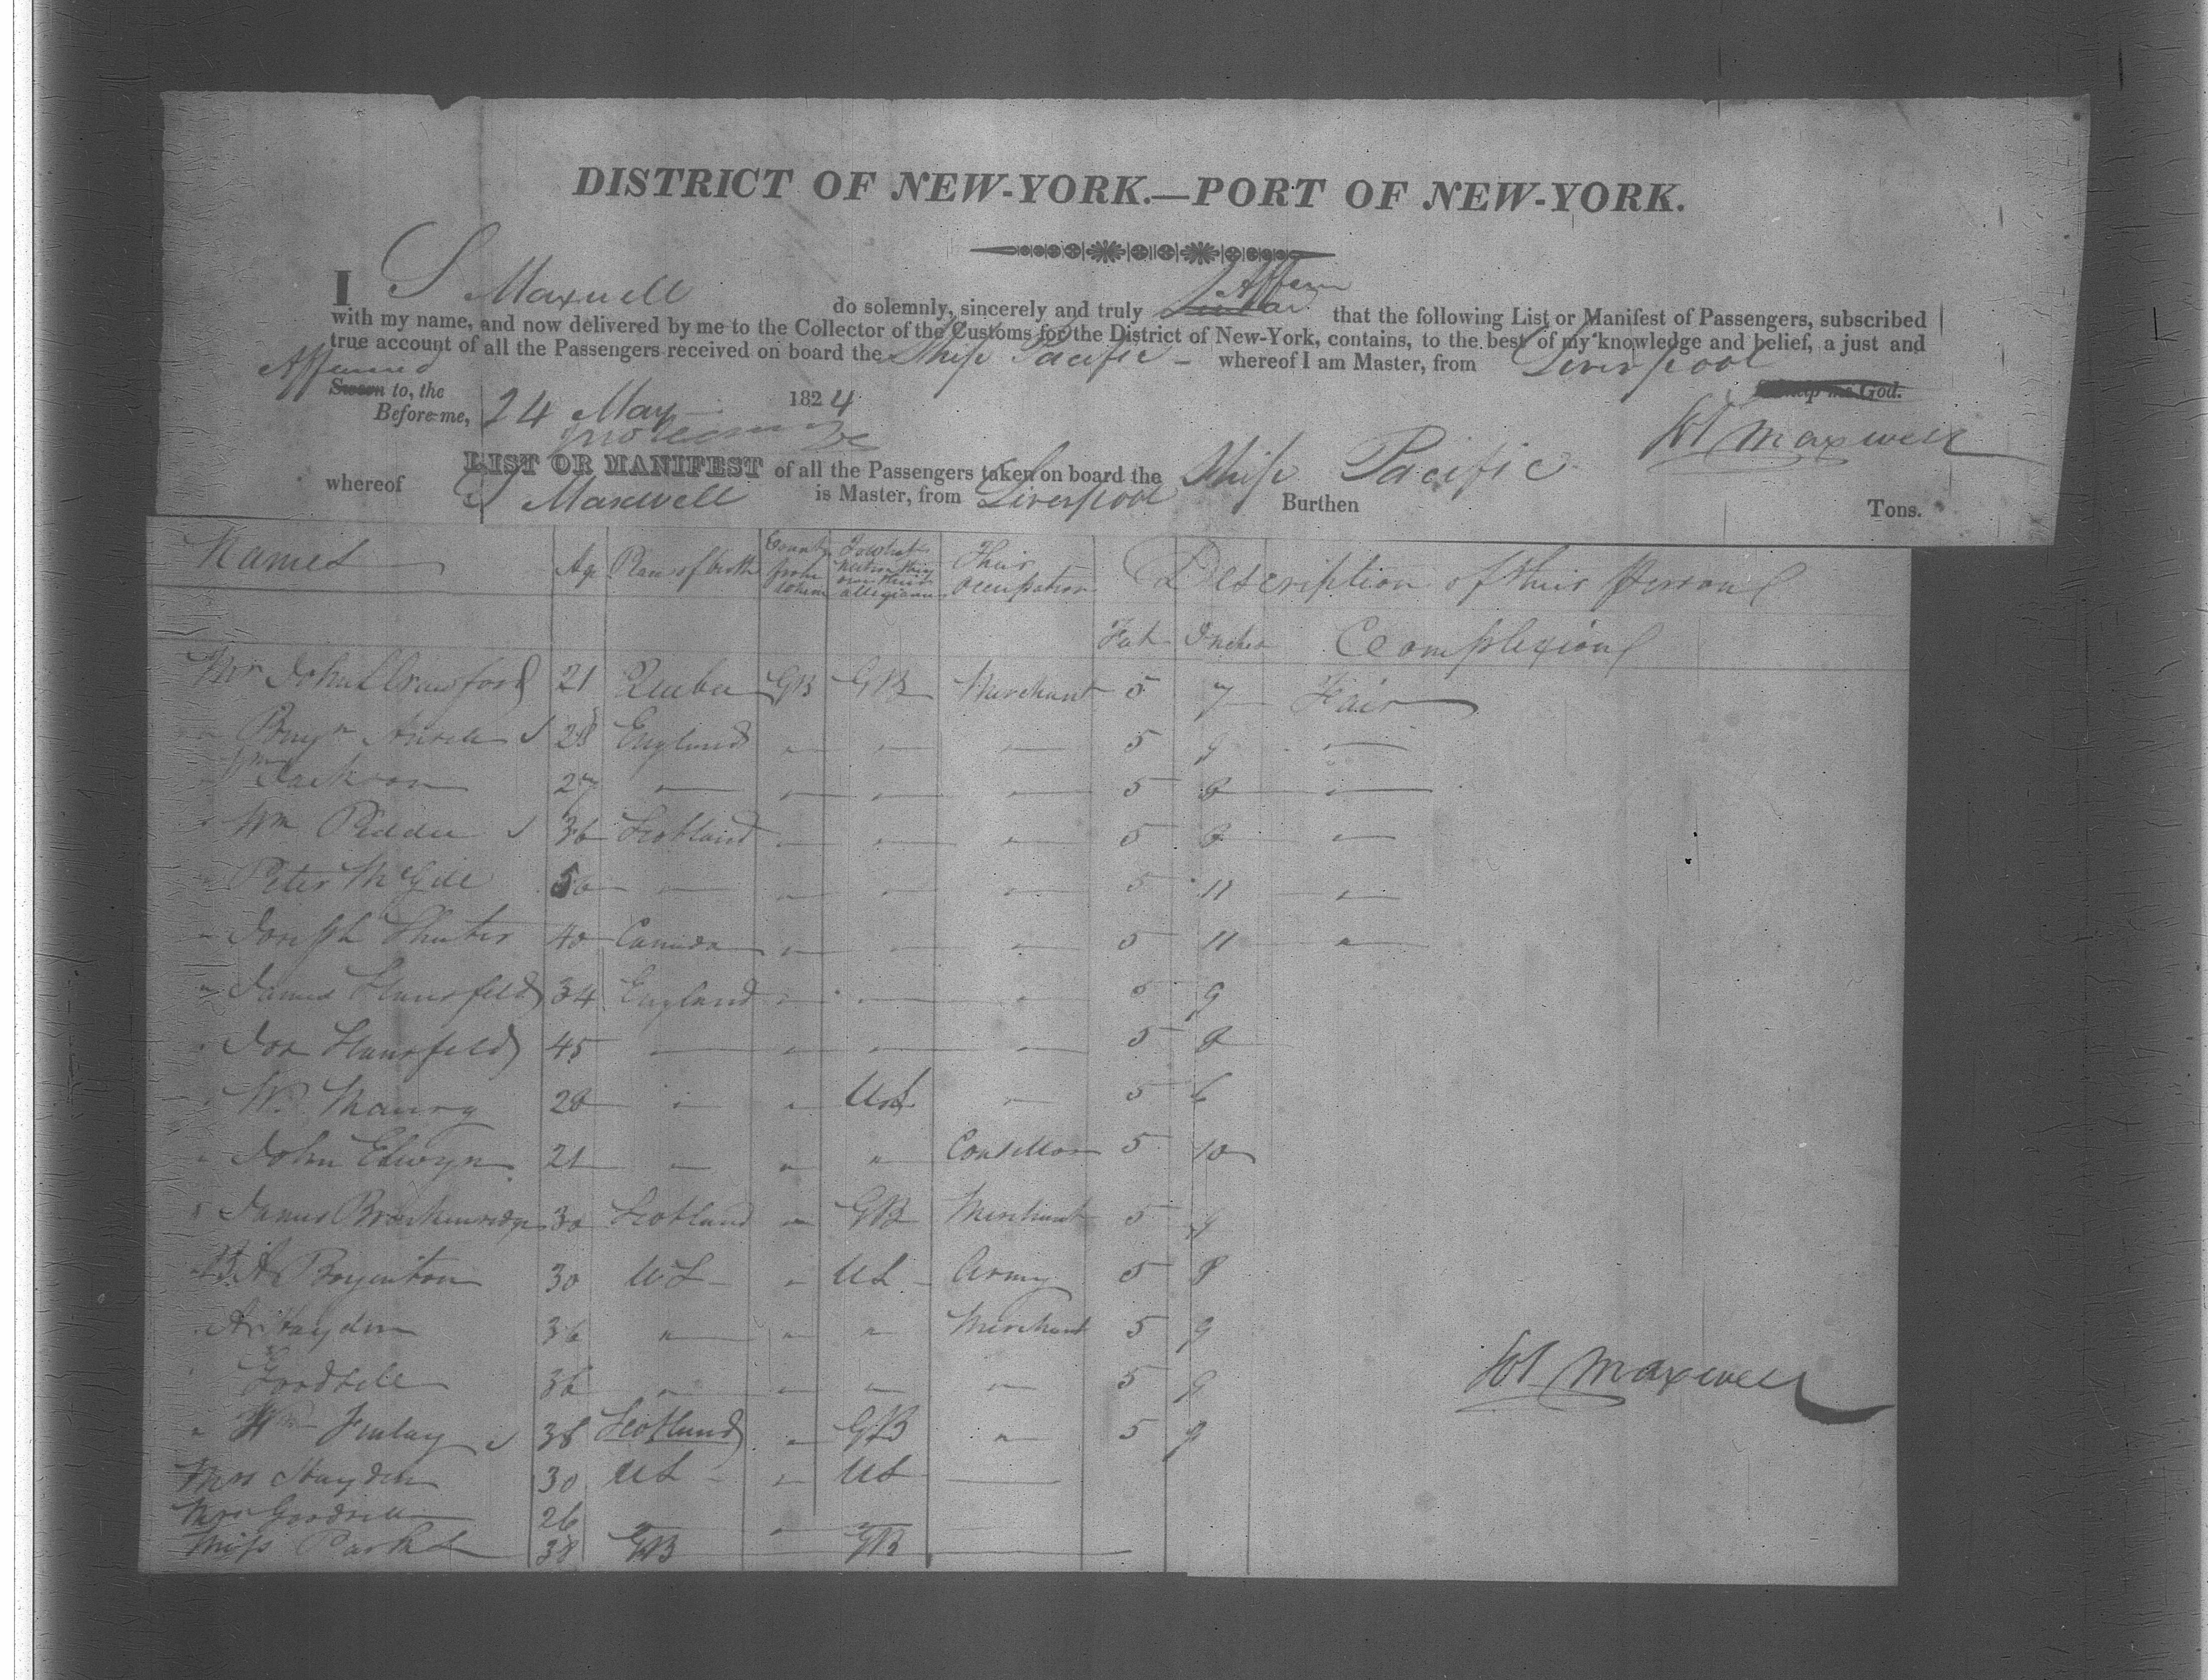 DISTRICT OF NEW-YORK.—PORT OF NEW-YORK.
I S Maxwell do solemnly, sincerely and truly Affirm that the following List or Manifest of Passengers, subscribed
with my name, and now delivered by me to the Collector of the Customs for the District of New-York, contains, to the best of my knowledge and belief, a just and
true account of all the Passengers received on board the Ship Pacific whereof I am Master, from Liverpool
Affirmed
Sworn to, the 24 May 1824 God.
Before me,
Maxwell
LIST OR MANIFEST of all the Passengers taken on board the Ship Pacific
whereof S Maxwell is Master, from Liverpool Burthen Tons.
Names Age Place of birth County from whence To what nation they owe their allegiance Their occupation Description of their Persons
Feet Inches Complexions
Mr John Crawford 21 Quebec GB GB Merchant 5 7 Fair
28 England " " " 5 —
Wm Jackson 27 — " " " 5 8 —
Wm Peddie 36 Scotland " " " 5 8 "
Peter McGill 36 — " " " 5 11 "
Joseph Shuter 40 Canada " " " 5 11 "
James Hansfeld 34 England " " " 5 9
Jos Hansfeld 45 — " " " 5 8
W. Maury 28 " " US " 5 6
John Elwyn 21 " " " 5 10
James 30 Scotland " GB Merchant 5
Boyenton 30 US " US Army 5 8
Hayden 36 " " " Merchant 5 9
Goodsell 36 " " " " 5 9
Wm Finlay 38 Scotland " GB " 5 9
Maxwell
Mrs Hayden 30 US " US —
Mrs Goodsell 26 " " "
Miss Parks 38 GB GB